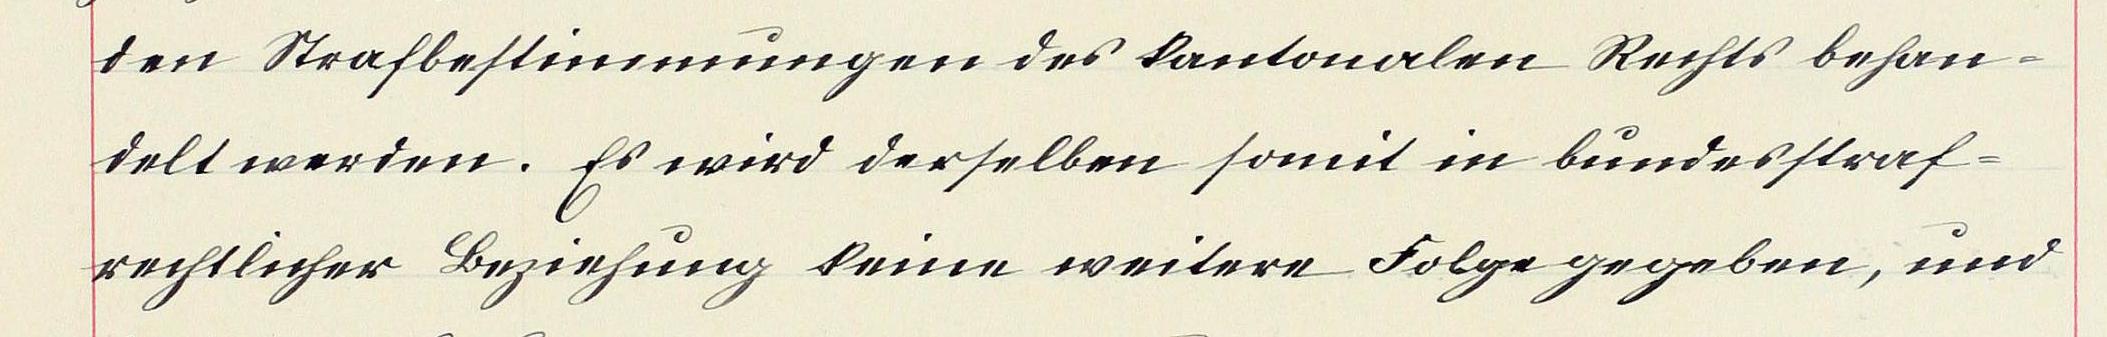 den Strafbestimmungen des kantonalen Rechts behan-
delt werden. Es wird derselben somit in bundesstraf-
rechtlicher Beziehung keine weitere Folge gegeben, und